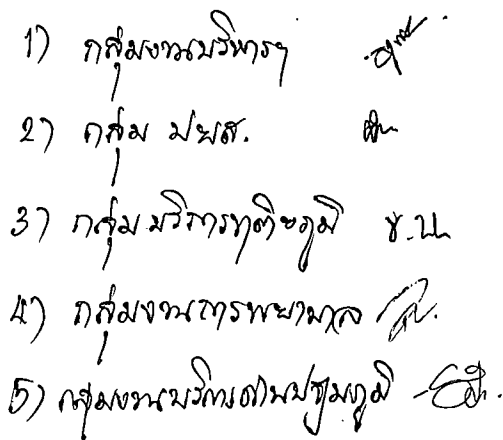 1) กลุ่มงานบริหารฯ
2) กลุ่ม พยส.
3) กลุ่มบริการทุติยภูมิ ช.น.
4) กลุ่มงานการพยาบาล
5) กลุ่มงานบริการด้านปฐมภูมิ